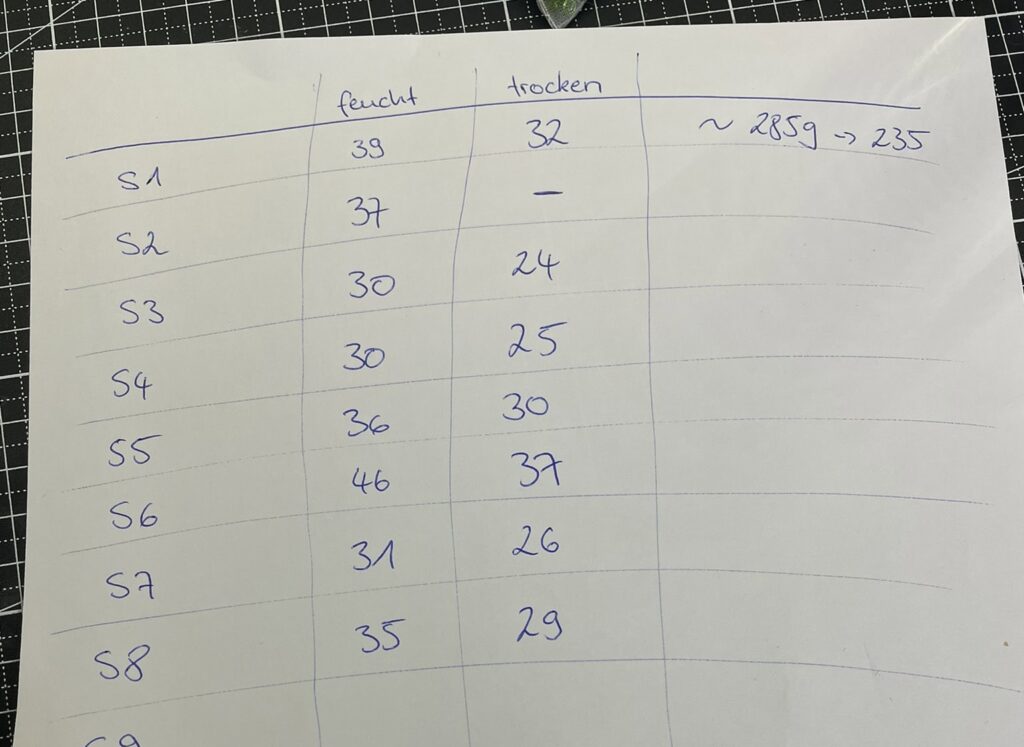 feucht trocken
S1 39 32 ~ 285g → 235
S2 37 –
S3 30 24
S4 30 25
S5 36 30
S6 46 37
S7 31 26
S8 35 29
S9